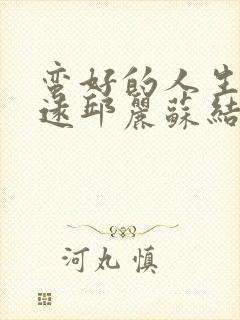 蛮好的人生
逑邱麗蘇結
河丸慎